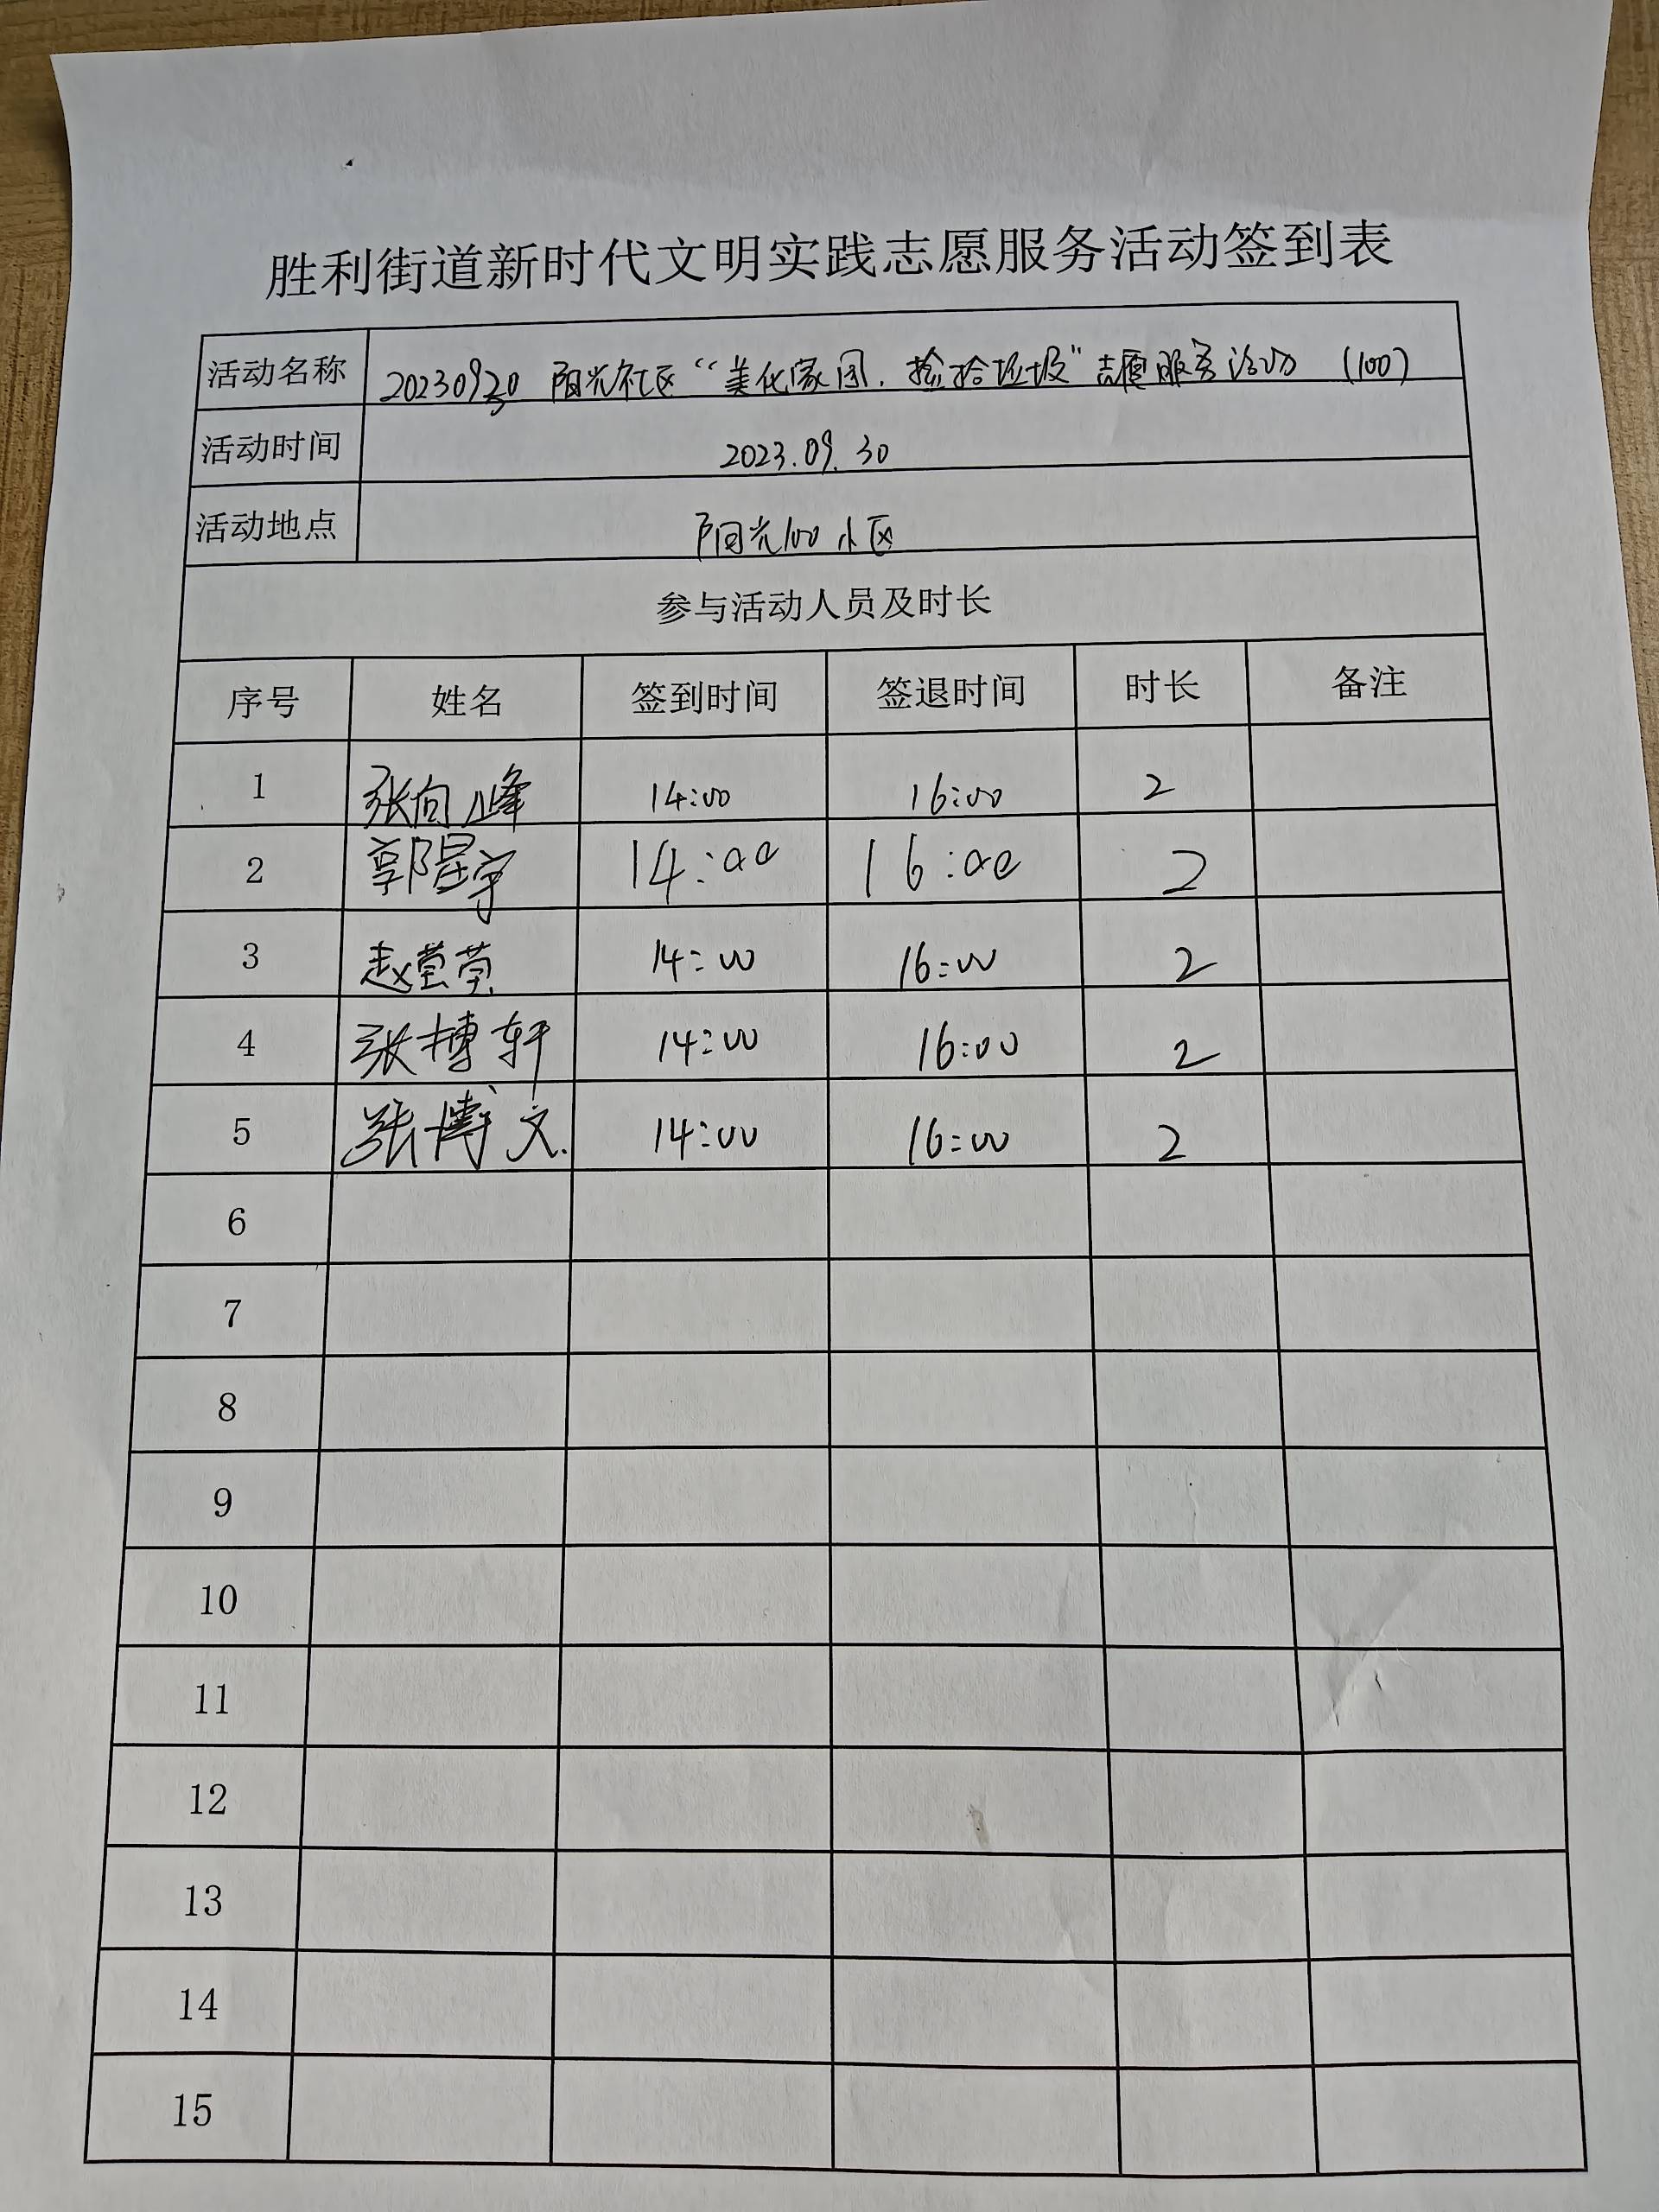 胜利街道新时代文明实践志愿服务活动签到表
活动名称 20230930 阳光社区“美化家园，捡拾垃圾”志愿服务活动 (100)
活动时间 2023.09.30
活动地点 阳光100小区
参与活动人员及时长
序号 姓名 签到时间 签退时间 时长 备注
1 张向峰 14:00 16:00 2
2 郭星宇 14:00 16:00 2
3 赵莹莹 14:00 16:00 2
4 张博轩 14:00 16:00 2
5 张博文 14:00 16:00 2
6
7
8
9
10
11
12
13
14
15